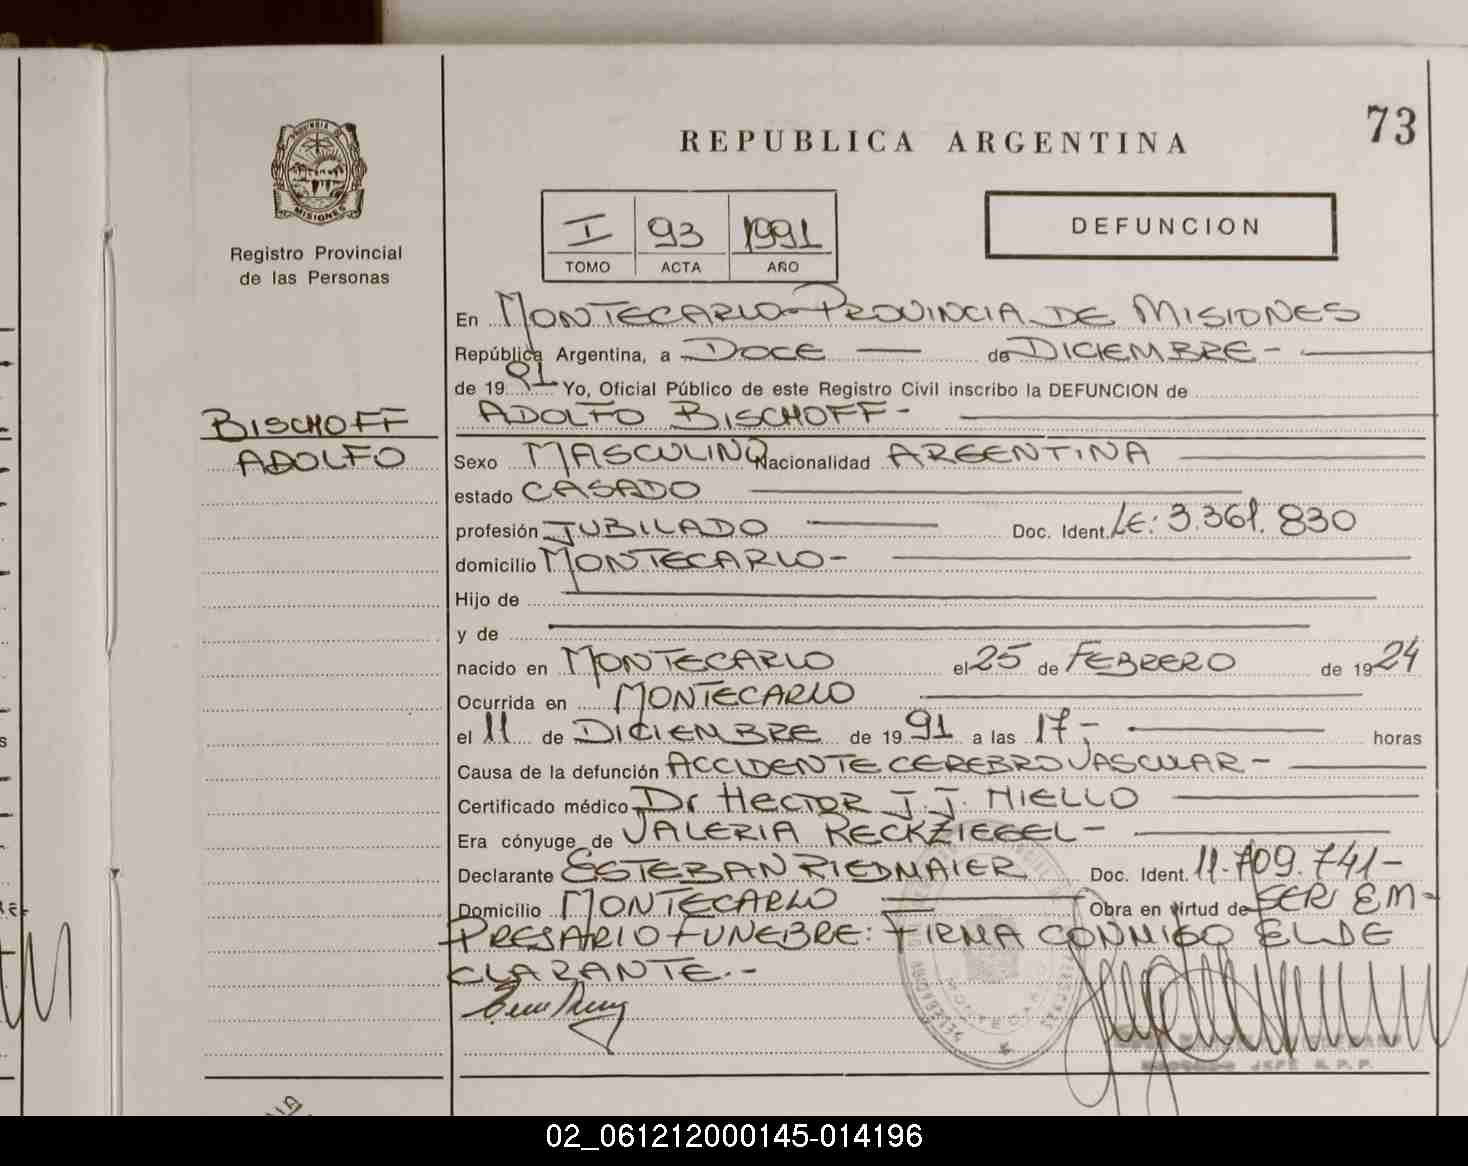 73
REPUBLICA ARGENTINA
PROVINCIA DE
MISIONES
Registro Provincial
de las Personas
I 93 1991
TOMO ACTA AÑO
DEFUNCION
En MONTECARLO - PROVINCIA DE MISIONES
República Argentina, a DOCE — de DICIEMBRE - —
de 1991 Yo, Oficial Público de este Registro Civil inscribo la DEFUNCION de
BISCHOFF
ADOLFO
ADOLFO BISCHOFF -
Sexo MASCULINO Nacionalidad ARGENTINA
estado CASADO
profesión JUBILADO — Doc. Ident. LE: 3.361.830
domicilio MONTECARLO -
Hijo de
y de
nacido en MONTECARLO el 25 de FEBRERO de 1924
Ocurrida en MONTECARLO
el 11 de DICIEMBRE de 1991 a las 17 - horas
Causa de la defunción ACCIDENTE CEREBRO VASCULAR -
Certificado médico Dr HECTOR J. J. MIELLO
Era cónyuge de VALERIA RECKZIEGEL -
Declarante ESTEBAN RIEDMAIER Doc. Ident. 11.709.741 -
Domicilio MONTECARLO Obra en virtud de SER EM-
PRESARIO FUNEBRE: FIRMA CONMIGO EL DE
CLARANTE. -
MONTECARLO
02_061212000145-014196